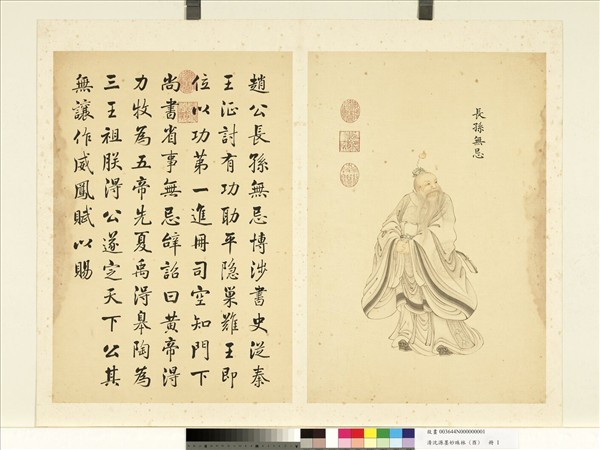 長孫無忌
趙公長孫無忌博涉書史從秦
王征討有功助平隐巢難王即
位以功第一進冊司空知門下
尚書省事無忌辞詔曰黄帝得
力牧為五帝先夏禹得皋陶為
三王祖朕得公遂定天下公其
無讓作威鳳賦以賜
故畫 003644N000000001
清沈源墨妙珠林（酉） 冊 1